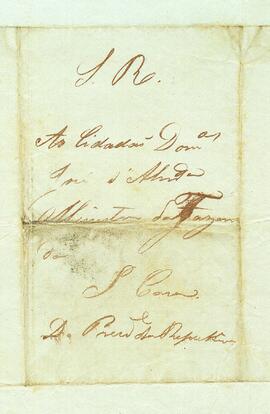 S. R.
Ao Cidadaõ Dom.os
José d'Almda
Ministro da Fazen
da
S Casa.
Do Prezde da Republica